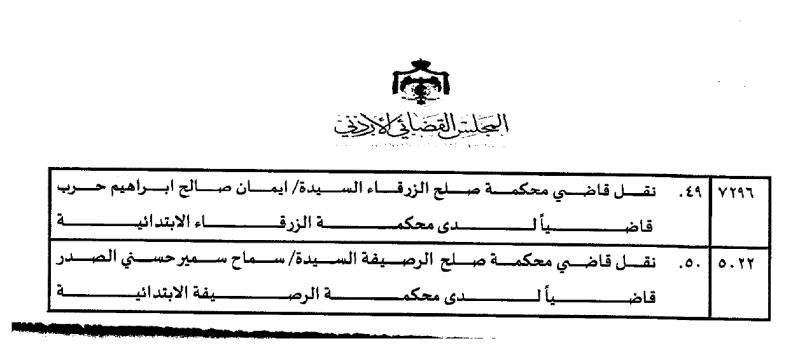 المجلس القضائي الأردني
٧٢٩٦ ٤٩. نقل قاضي محكمة صلح الزرقاء السيدة/ ايمان صالح ابراهيم حرب
قاضياً لدى محكمة الزرقاء الابتدائية
٥٠٢٢ ٥٠. نقل قاضي محكمة صلح الرصيفة السيدة/ سماح سمير حسني الصدر
قاضياً لدى محكمة الرصيفة الابتدائية